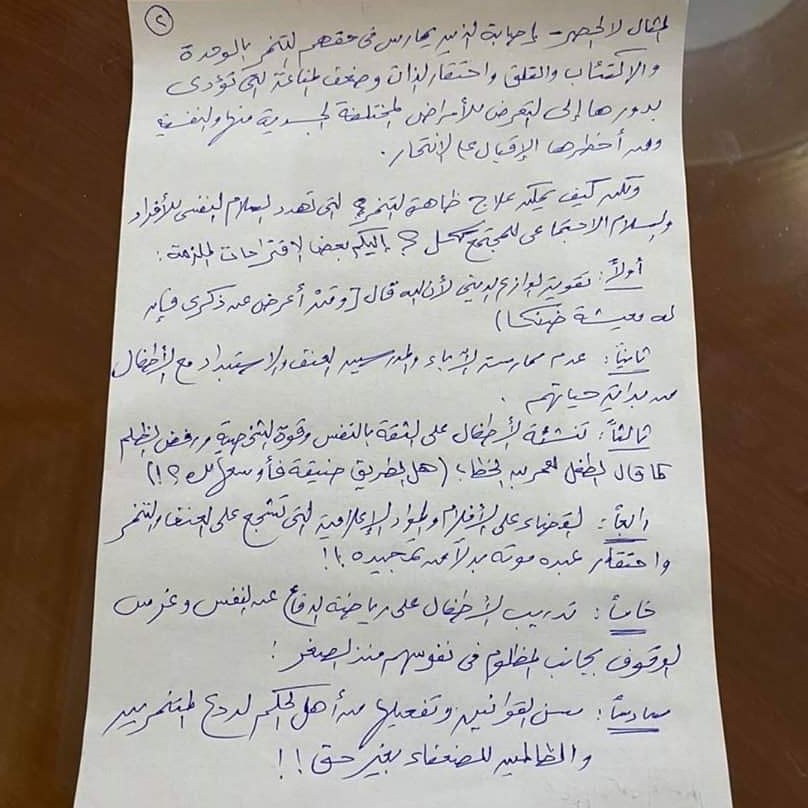 ٢
المثال لا الحصر - إصابة الذين يمارس في حقهم التنمر بالوحدة
والاكتئاب والقلق واحتقار الذات وضعف المناعة التي تؤدى
بدورها إلى التعرض للأمراض المختلفة الجسدية منها والنفسية
ومن أخطرها الإقبال على الانتحار.
ولكن كيف يمكن علاج ظاهرة التنمر التي تهدد السلام النفسي للأفراد
والسلام الاجتماعى للمجتمع ككل؟ إليكم بعض الاقتراحات الملزمة:
أولاً: تقوية الوازع الدينى لأن الله قال [ومن أعرض عن ذكرى فإن
له معيشة ضنكا)
ثانياً: عدم ممارسة الآباء والمدرسين العنف والاستبداد مع الأطفال
من بداية حياتهم.
ثالثاً: تنشئة الأطفال على الثقة بالنفس وقوة الشخصية ورفض الظلم
كما قال الطفل لعمر بن الخطاب (هل الطريق ضيقة فأوسعها لك؟!)
رابعاً: القضاء على الأفلام والمواد الإعلامية التى تشجع على العنف والتنمر
واحتقار عبده موته بدلاً من تمجيده!!
خامساً: تدريب الأطفال على رياضة الدفاع عن النفس وغرس
الوقوف بجانب المظلوم في نفوسهم منذ الصغر!
سادساً: سن القوانين وتفعيلها من أهل الحكم لردع المتنمرين
والظالمين للضعفاء بغير حق!!